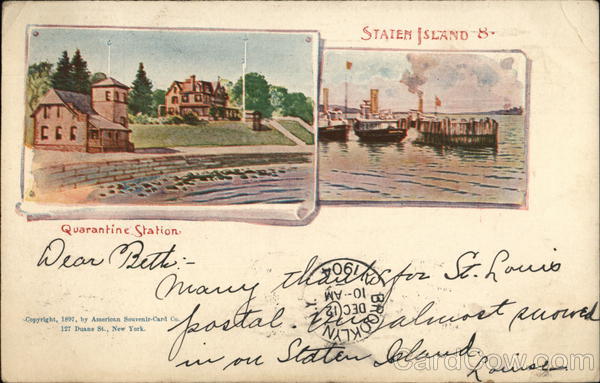 STATEN ISLAND 8-
Quarantine Station.
Dear Beth:-
Many thanks for St. Louis
postal. almost snowed
in on Staten Island
Louise
Copyright, 1897, by American Souvenir-Card Co.
127 Duane St., New York.
BROOKLYN
DEC 12
10-AM
1904
CardCow.com